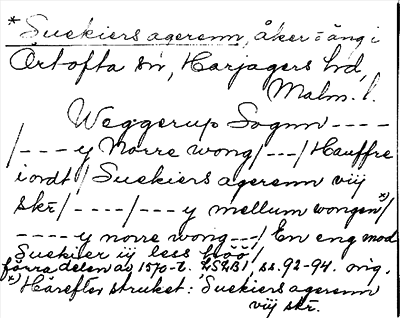 * Suekiers agerenn, åker = äng i
Örtofta sn, Harjagers hd,
Malm. l.
Weggerup Sognn ----
/---- y Norre wong/---/ Hauffre
iordt/ Suekiers agerenn viij
skr/----/--- y mellum wongen*)/
---- y norre wong --/ En eng mod
Suekier iij less höö/
förra delen av 1570-t. LSLB1, ss. 92-94. orig.
*) Härefter struket: Suekiers agerenn
viij skr.